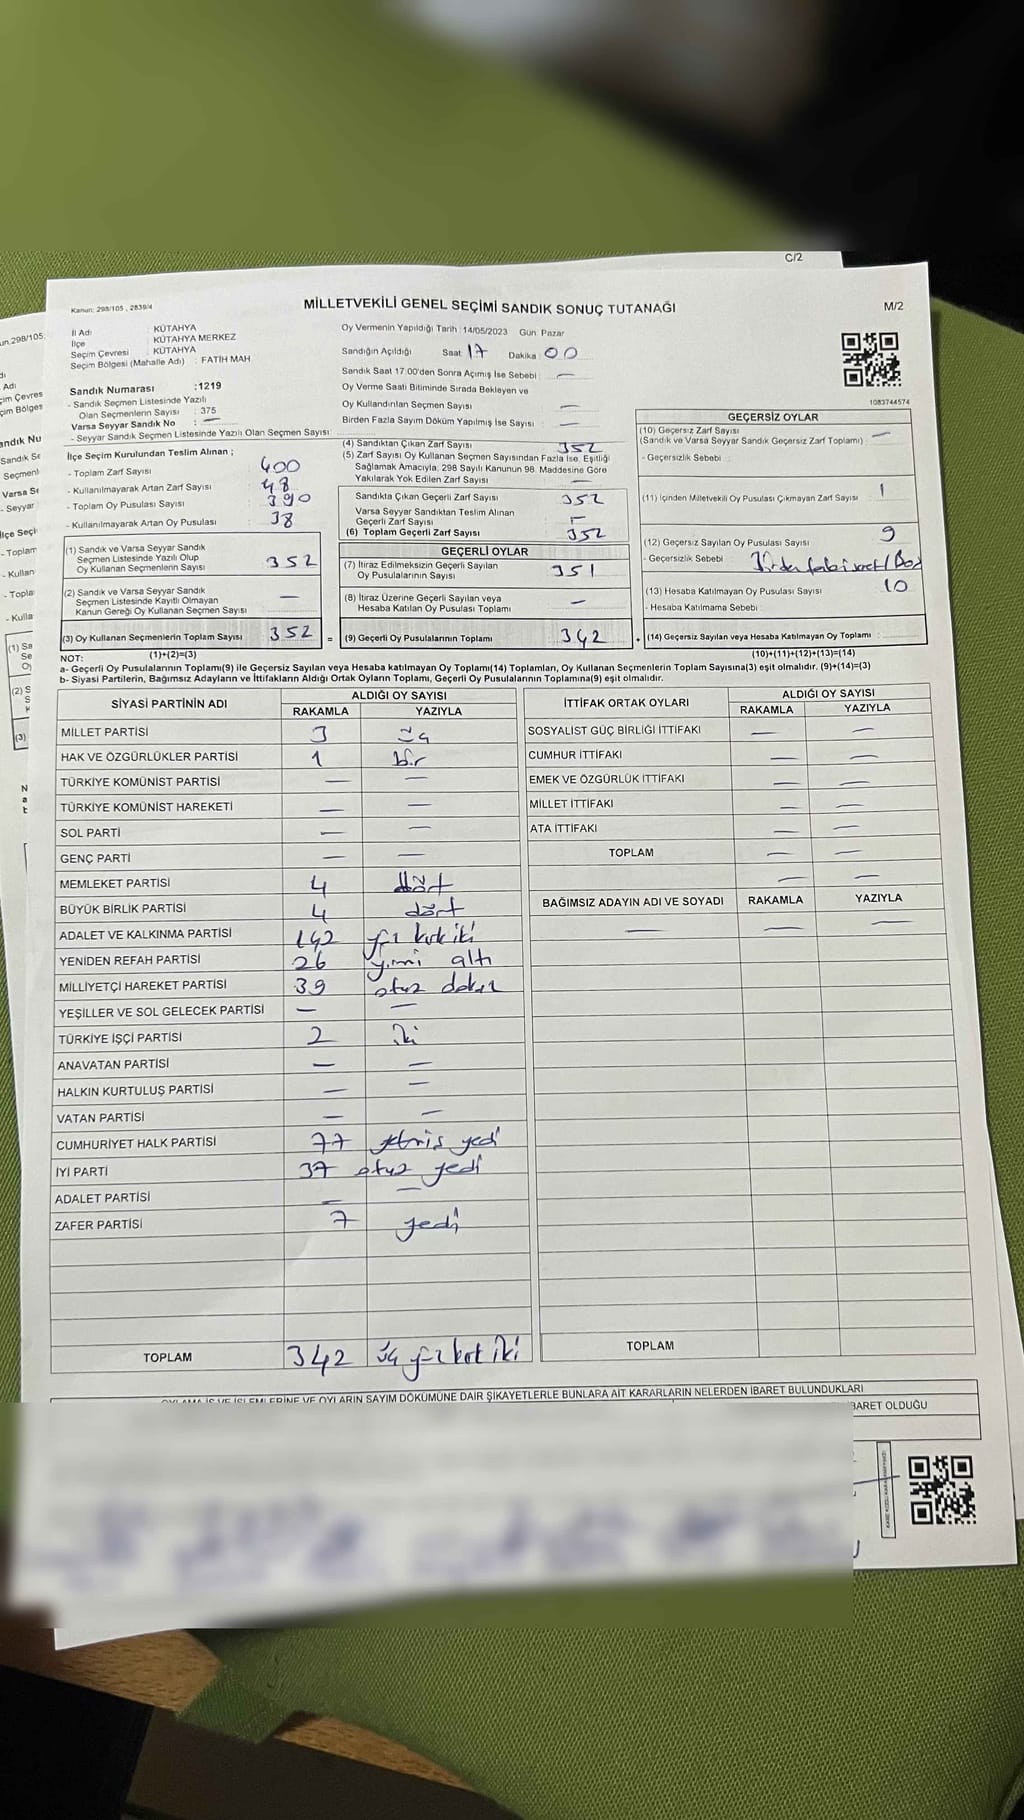 C/2
Kanun: 298/105 , 2839/4
MİLLETVEKİLİ GENEL SEÇİMİ SANDIK SONUÇ TUTANAĞI
M/2
İl Adı : KÜTAHYA
İlçe : KÜTAHYA MERKEZ
Seçim Çevresi : KÜTAHYA
Seçim Bölgesi (Mahalle Adı) : FATİH MAH
Sandık Numarası :1219
- Sandık Seçmen Listesinde Yazılı
Olan Seçmenlerin Sayısı : 375
Varsa Seyyar Sandık No : —
- Seyyar Sandık Seçmen Listesinde Yazılı Olan Seçmen Sayısı:
İlçe Seçim Kurulundan Teslim Alınan ;
- Toplam Zarf Sayısı 400
- Kullanılmayarak Artan Zarf Sayısı 48
- Toplam Oy Pusulası Sayısı 390
- Kullanılmayarak Artan Oy Pusulası 38
(1) Sandık ve Varsa Seyyar Sandık
Seçmen Listesinde Yazılı Olup
Oy Kullanan Seçmenlerin Sayısı 352
(2) Sandık ve Varsa Seyyar Sandık
Seçmen Listesinde Kayıtlı Olmayan
Kanun Gereği Oy Kullanan Seçmen Sayısı —
(3) Oy Kullanan Seçmenlerin Toplam Sayısı 352 =
(1)+(2)=(3)
Oy Vermenin Yapıldığı Tarih : 14/05/2023 Gün: Pazar
Sandığın Açıldığı Saat 17 Dakika : 00
Sandık Saat 17:00'den Sonra Açımış İse Sebebi : —
Oy Verme Saati Bitiminde Sırada Bekleyen ve
Oy Kullandırılan Seçmen Sayısı —
Birden Fazla Sayım Döküm Yapılmış İse Sayısı : —
(4) Sandıktan Çıkan Zarf Sayısı 352
(5) Zarf Sayısı Oy Kullanan Seçmen Sayısından Fazla İse, Eşitliği
Sağlamak Amacıyla, 298 Sayılı Kanunun 98. Maddesine Göre
Yakılarak Yok Edilen Zarf Sayısı —
Sandıkta Çıkan Geçerli Zarf Sayısı 352
Varsa Seyyar Sandıktan Teslim Alınan
Geçerli Zarf Sayısı —
(6) Toplam Geçerli Zarf Sayısı 352
GEÇERLİ OYLAR
(7) İtiraz Edilmeksizin Geçerli Sayılan
Oy Pusulalarının Sayısı 351
(8) İtiraz Üzerine Geçerli Sayılan veya
Hesaba Katılan Oy Pusulası Toplamı —
(9) Geçerli Oy Pusulalarının Toplamı 342 +
1083744574
GEÇERSİZ OYLAR
(10) Geçersiz Zarf Sayısı
(Sandık ve Varsa Seyyar Sandık Geçersiz Zarf Toplamı) —
- Geçersizlik Sebebi :
(11) İçinden Milletvekili Oy Pusulası Çıkmayan Zarf Sayısı 1
(12) Geçersiz Sayılan Oy Pusulası Sayısı 9
- Geçersizlik Sebebi
(13) Hesaba Katılmayan Oy Pusulası Sayısı 10
- Hesaba Katılmama Sebebi :
(14) Geçersiz Sayılan veya Hesaba Katılmayan Oy Toplamı
(10)+(11)+(12)+(13)=(14)
NOT:
a- Geçerli Oy Pusulalarının Toplamı(9) ile Geçersiz Sayılan veya Hesaba katılmayan Oy Toplamı(14) Toplamları, Oy Kullanan Seçmenlerin Toplam Sayısına(3) eşit olmalıdır. (9)+(14)=(3)
b- Siyasi Partilerin, Bağımsız Adayların ve İttifakların Aldığı Ortak Oyların Toplamı, Geçerli Oy Pusulalarının Toplamına(9) eşit olmalıdır.
SİYASİ PARTİNİN ADI ALDIĞI OY SAYISI
RAKAMLA YAZIYLA
MİLLET PARTİSİ 3 üç
HAK VE ÖZGÜRLÜKLER PARTİSİ 1 bir
TÜRKİYE KOMÜNİST PARTİSİ — —
TÜRKİYE KOMÜNİST HAREKETİ — —
SOL PARTİ — —
GENÇ PARTİ — —
MEMLEKET PARTİSİ 4 dört
BÜYÜK BİRLİK PARTİSİ 4 dört
ADALET VE KALKINMA PARTİSİ 142 yüz kırk iki
YENİDEN REFAH PARTİSİ 26 yirmi altı
MİLLİYETÇİ HAREKET PARTİSİ 39 otuz dokuz
YEŞİLLER VE SOL GELECEK PARTİSİ — —
TÜRKİYE İŞÇİ PARTİSİ 2 iki
ANAVATAN PARTİSİ — —
HALKIN KURTULUŞ PARTİSİ — —
VATAN PARTİSİ — —
CUMHURİYET HALK PARTİSİ 77 yetmiş yedi
İYİ PARTİ 37 otuz yedi
ADALET PARTİSİ — —
ZAFER PARTİSİ 7 yedi
TOPLAM 342 üç yüz kırk iki
İTTİFAK ORTAK OYLARI ALDIĞI OY SAYISI
RAKAMLA YAZIYLA
SOSYALİST GÜÇ BİRLİĞİ İTTİFAKI — —
CUMHUR İTTİFAKI — —
EMEK VE ÖZGÜRLÜK İTTİFAKI — —
MİLLET İTTİFAKI — —
ATA İTTİFAKI — —
TOPLAM — —
— —
BAĞIMSIZ ADAYIN ADI VE SOYADI RAKAMLA YAZIYLA
— — —
TOPLAM
OYLAMA İŞ VE İŞLEMLERİNE VE OYLARIN SAYIM DÖKÜMÜNE DAİR ŞİKAYETLERLE BUNLARA AİT KARARLARIN NELERDEN İBARET BULUNDUKLARI
İBARET OLDUĞU